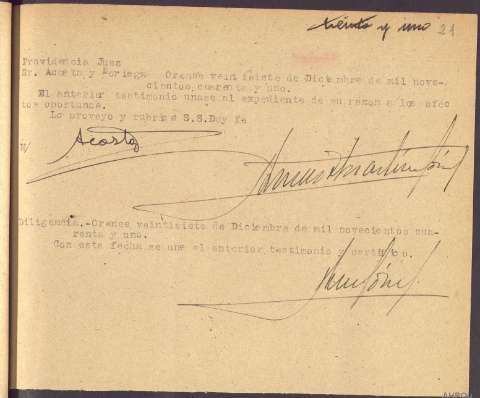 treinta y uno 21
Providencia Juez
Sr. Acosta y Noriega Orense veintisiete de Diciembre de mil nove-
cientos cuarenta y uno.
El anterior testimonio unase al expediente de su razon a los efec
tos oportunos.
Lo proveyo y rubrica S.S.Doy fe
Acosta
Diligencia.-Orense veintisiete de Diciembre de mil novecientos cua-
renta y uno.
Con esta fecha se une el anterior testimonio y certifico.